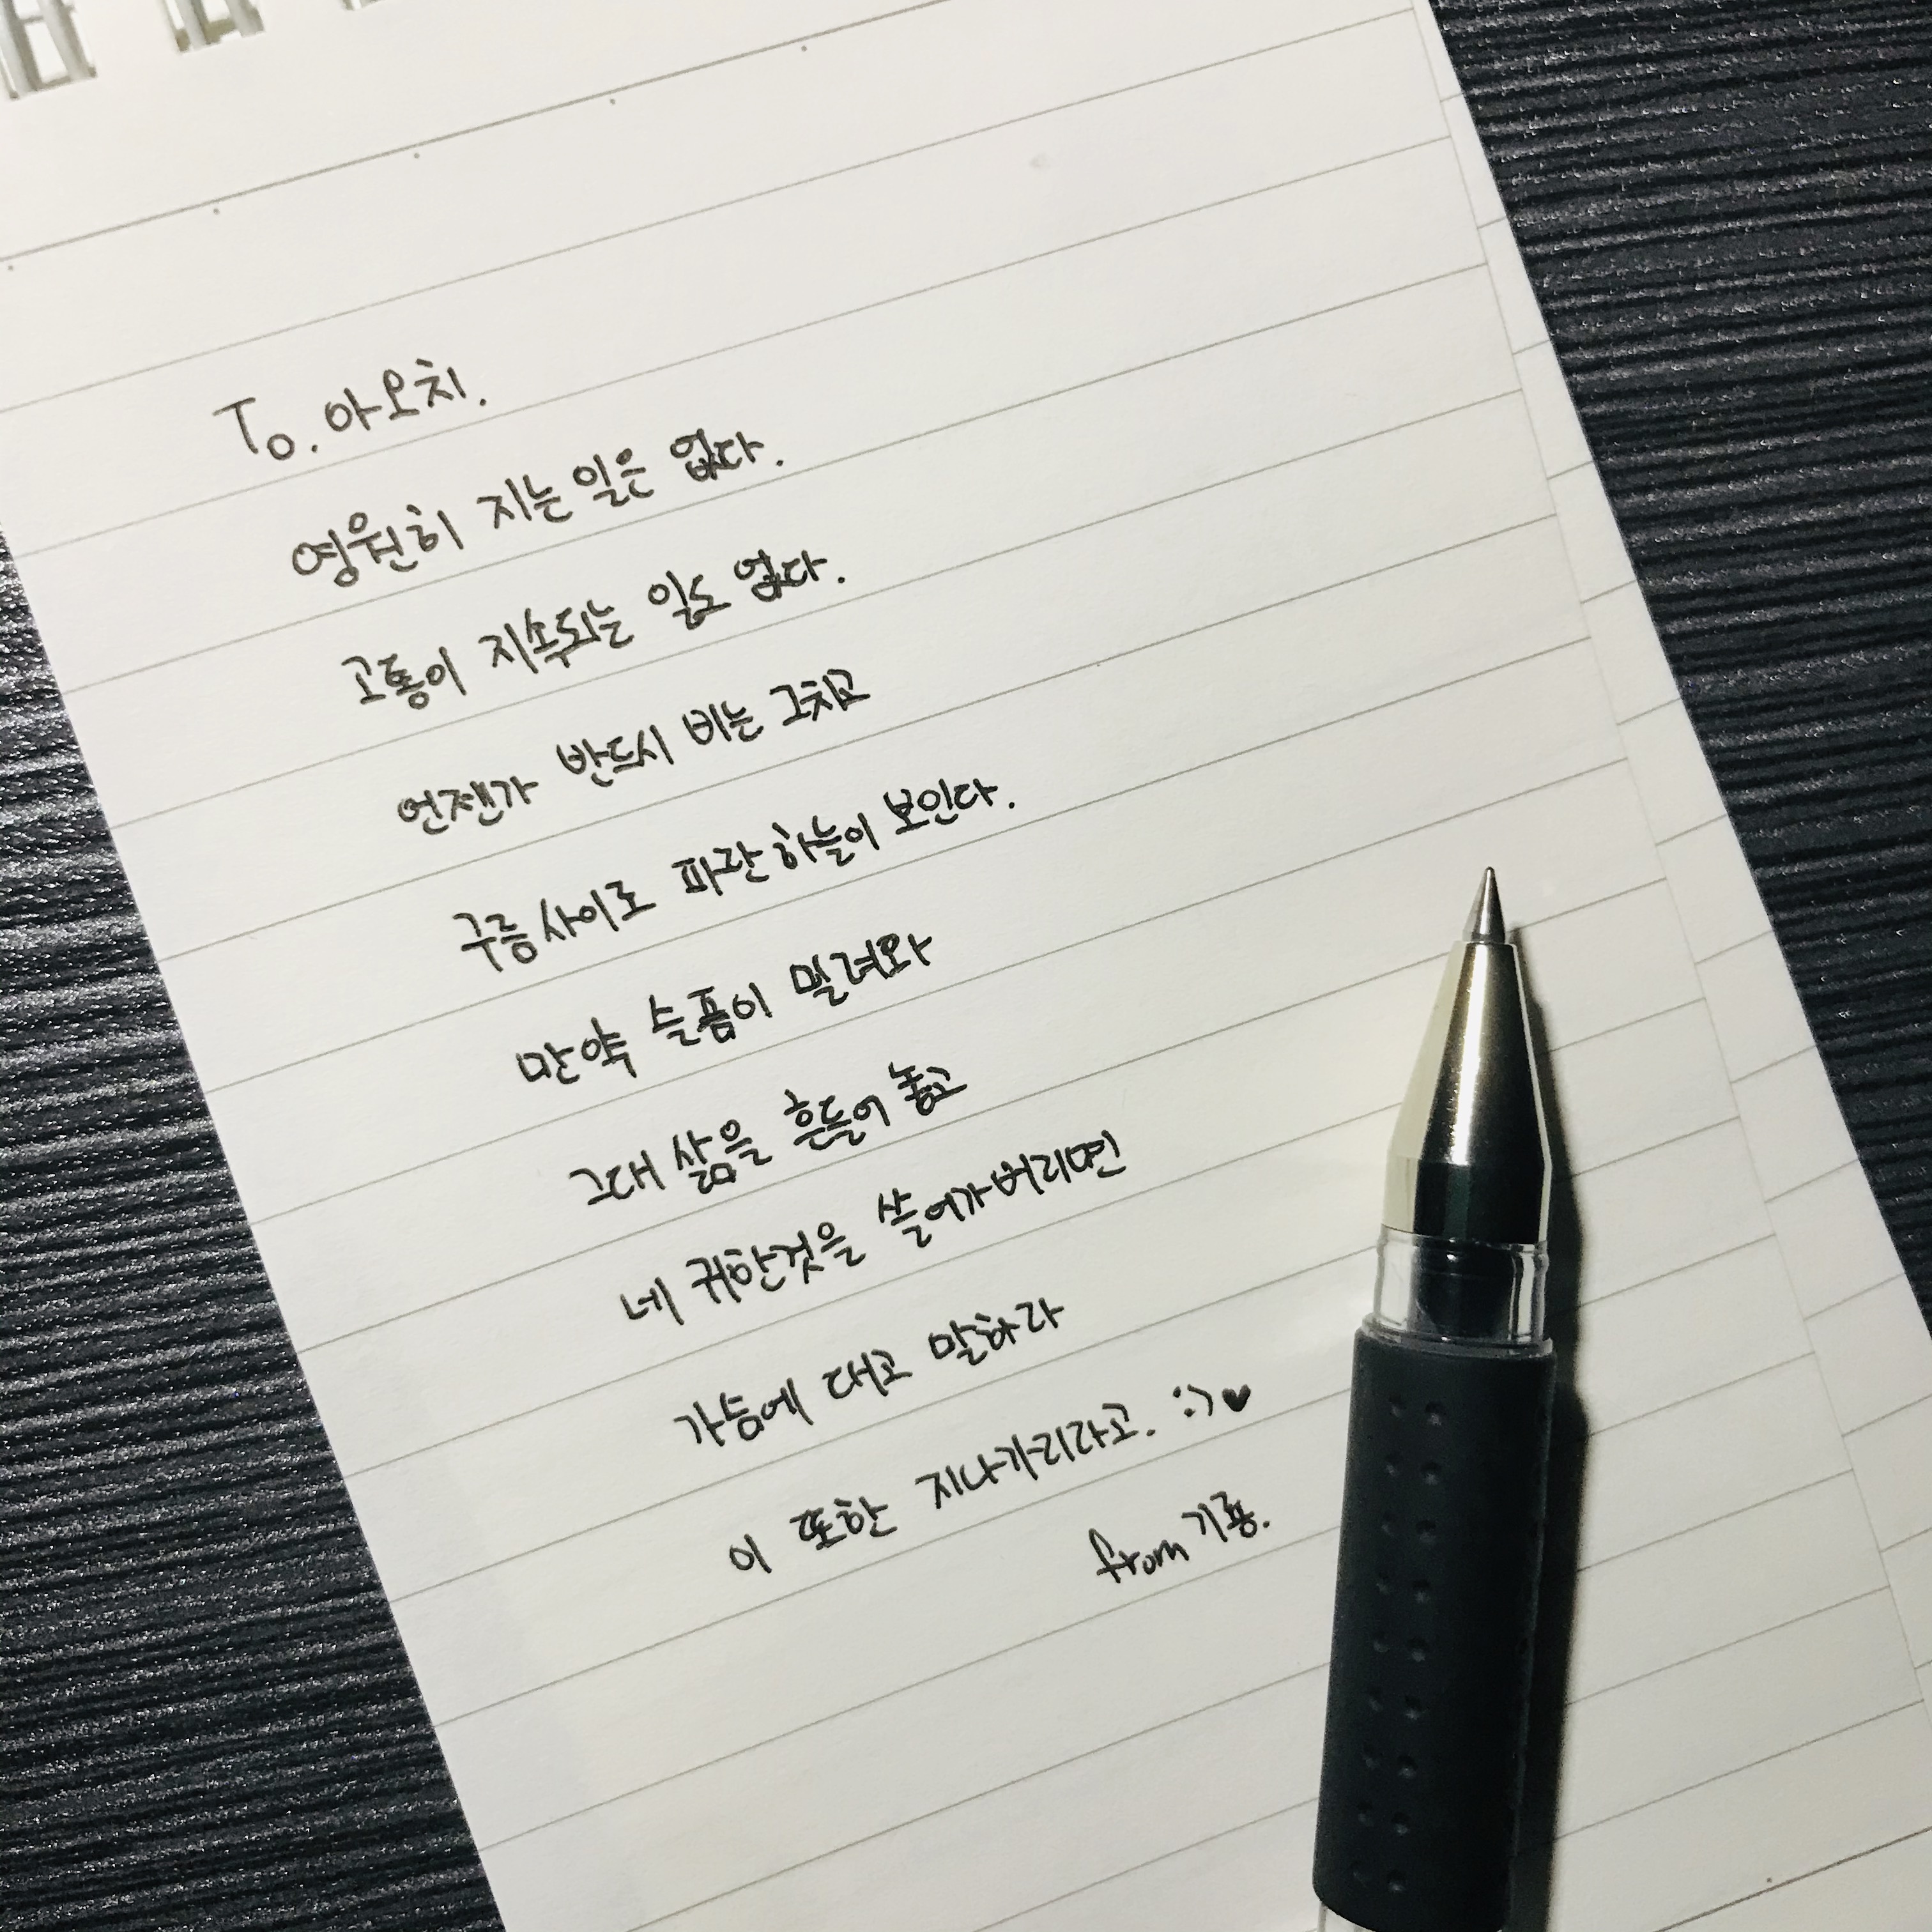 To. 아오치.
영원히 지는 일은 없다.
고통이 지속되는 일도 없다.
언젠가 반드시 비는 그치고
구름사이로 파란하늘이 보인다.
만약 슬픔이 밀려와
그대 삶을 흔들어 놓고
네 귀한것을 쓸어가버리면
가슴에 대고 말하라
이 또한 지나가리라고. :) ♥
from 기룡.